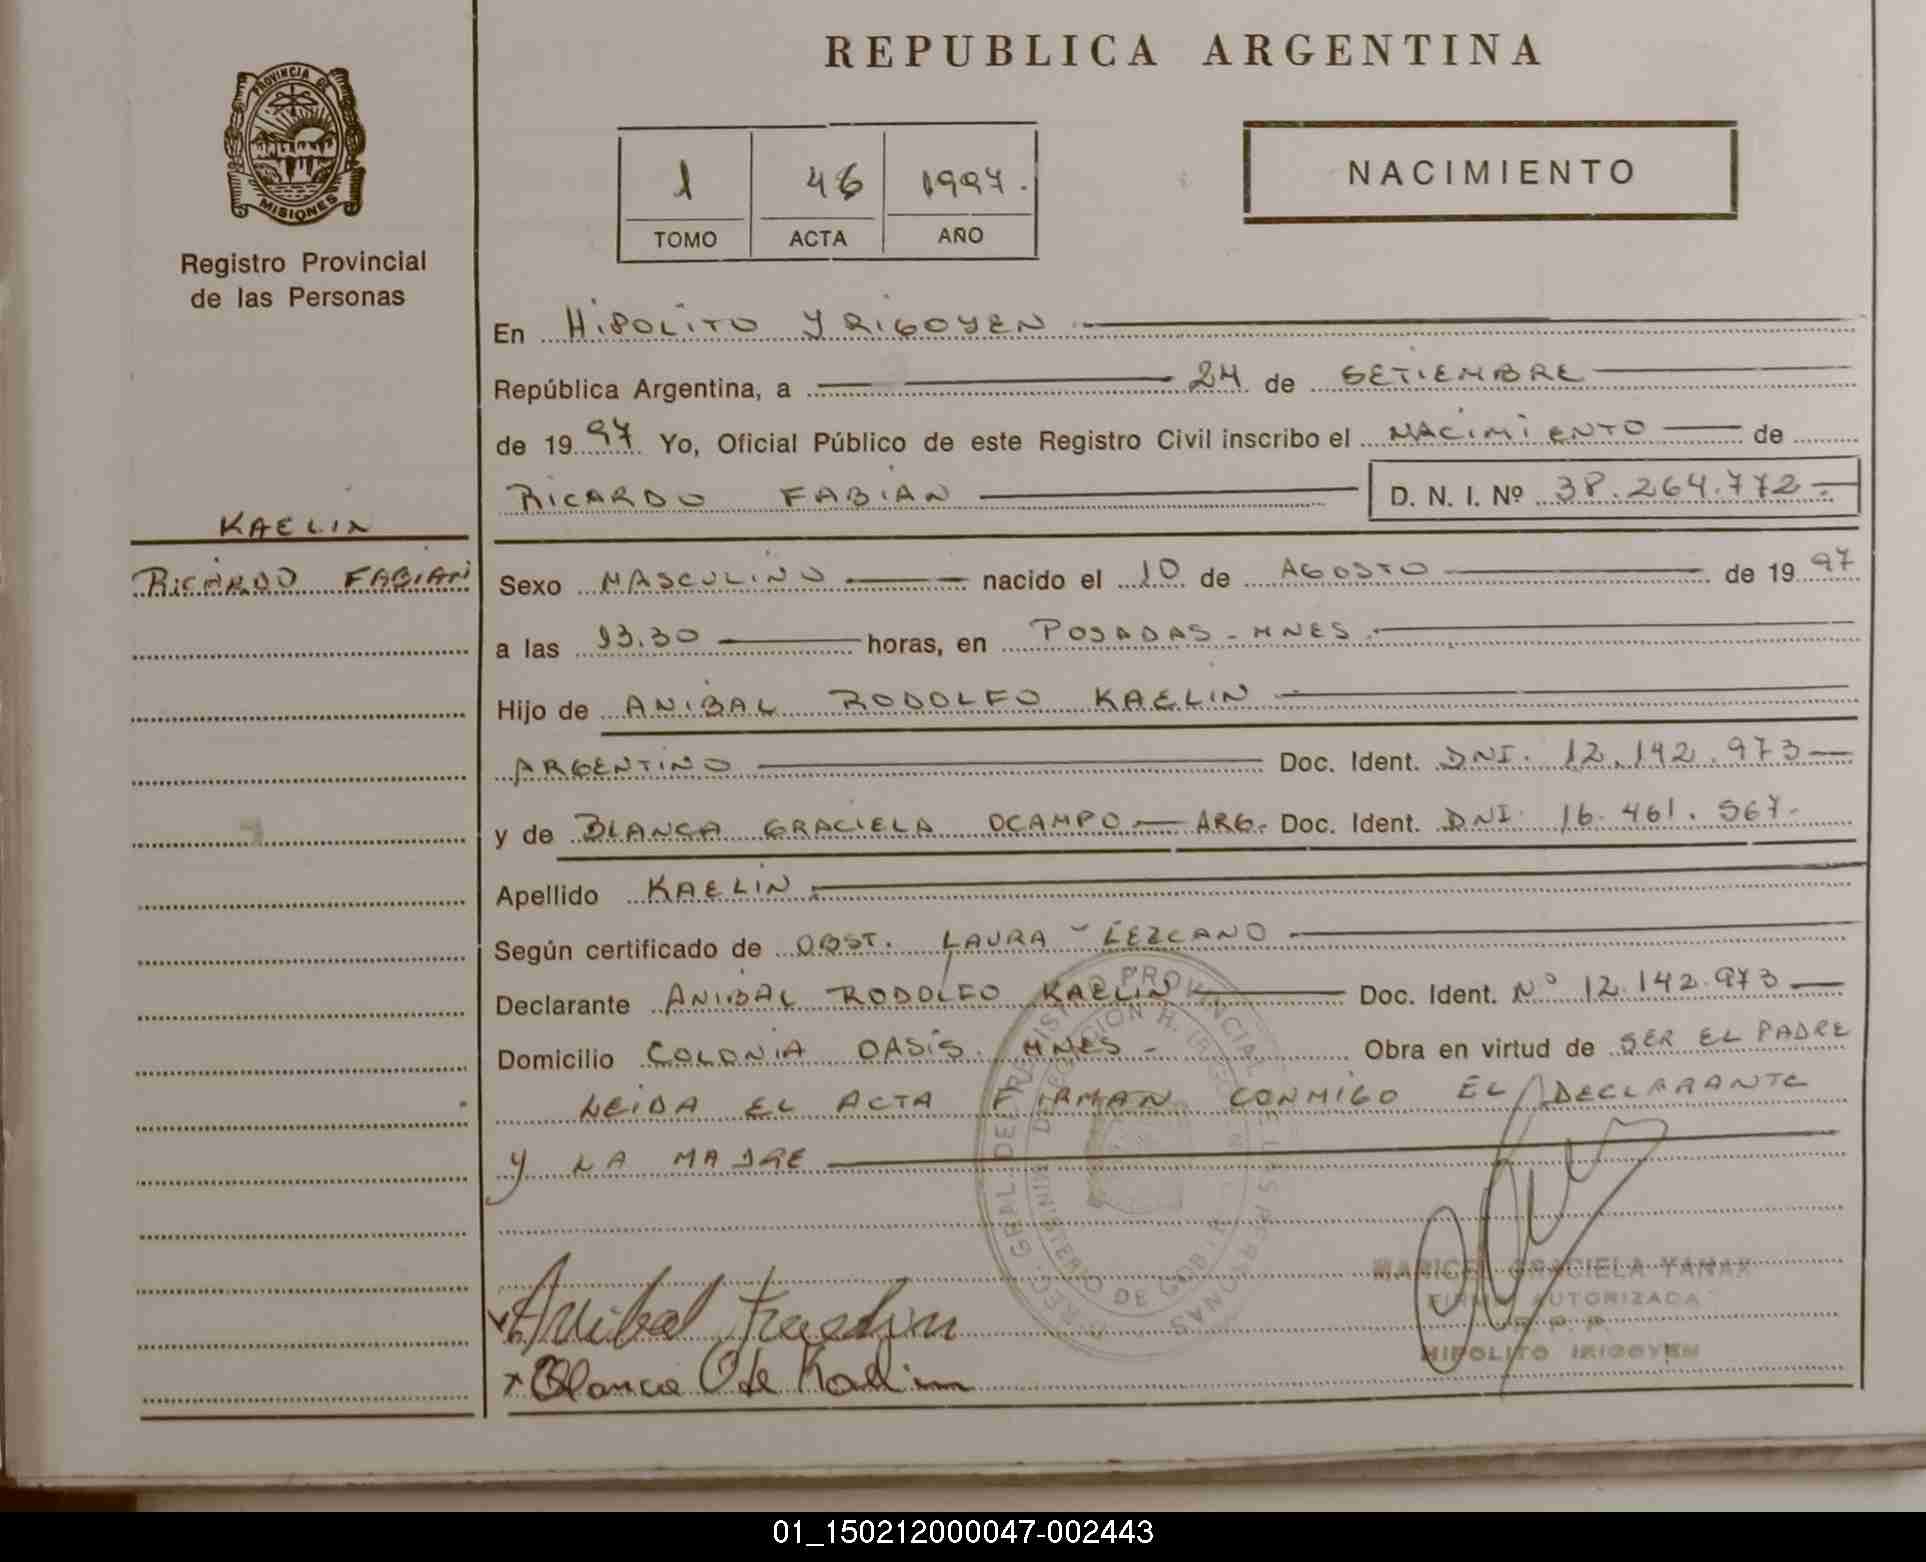 REPUBLICA ARGENTINA
PROVINCIA DE
MISIONES
Registro Provincial
de las Personas
1 46 1997.
TOMO ACTA AÑO
NACIMIENTO
En HIPOLITO YRIGOYEN
República Argentina, a 24 de SETIEMBRE
de 1997 Yo, Oficial Público de este Registro Civil inscribo el NACIMIENTO de
RICARDO FABIAN D. N. I. Nº 38.264.772
KAELIN
RICARDO FABIAN
Sexo MASCULINO nacido el 10 de AGOSTO de 1997
a las 13.30 horas, en POSADAS - MNES.
Hijo de ANIBAL RODOLFO KAELIN
ARGENTINO Doc. Ident. DNI. 12.142.973
y de BLANCA GRACIELA OCAMPO - ARG. Doc. Ident. DNI. 16.461.567.
Apellido KAELIN
Según certificado de OBST. LAURA LEZCANO
Declarante ANIBAL RODOLFO KAELIN Doc. Ident. Nº 12.142.973
Domicilio COLONIA OASIS. MNES - Obra en virtud de SER EL PADRE
LEIDA EL ACTA FIRMAN CONMIGO EL DECLARANTE
Y LA MADRE
Anibal Kaelin
Blanca O de Kaelin
MARICEL GRACIELA YANAX
FIRMA AUTORIZADA
R. P. P.
HIPOLITO IRIGOYEN
01_150212000047-002443